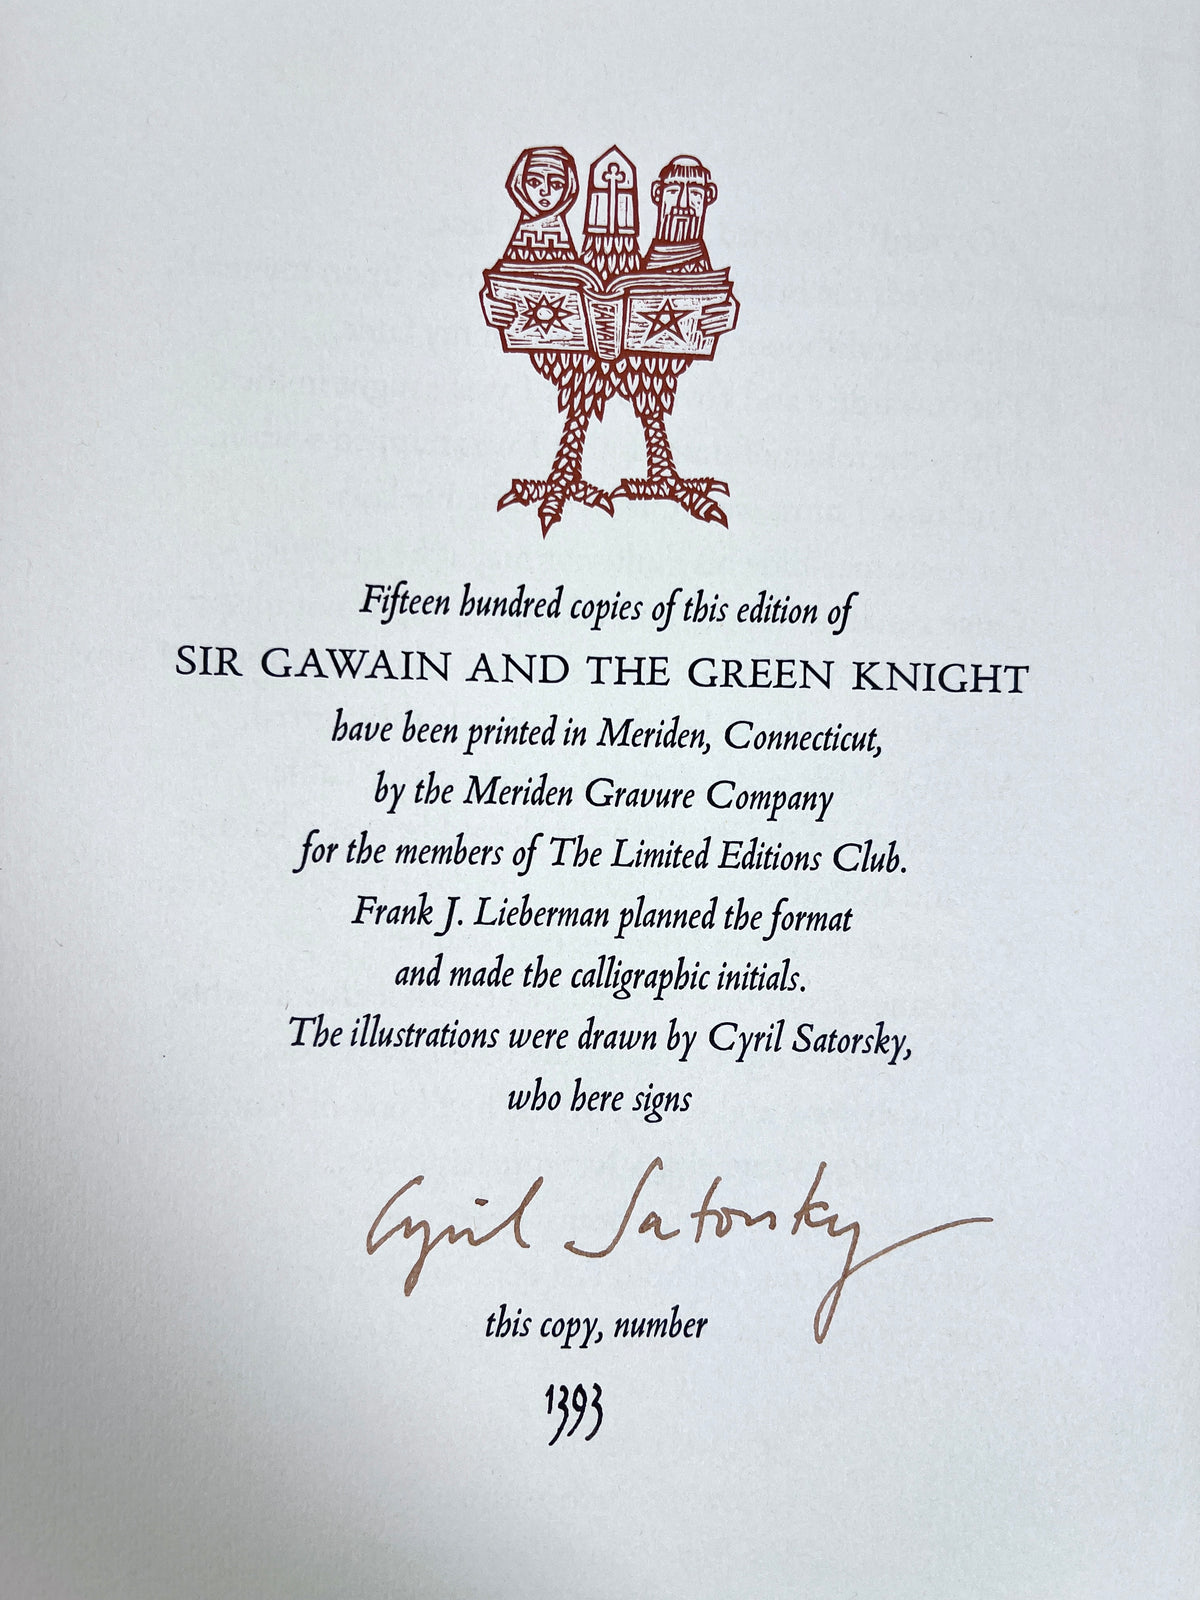 GAWAIN
Fifteen hundred copies of this edition of
SIR GAWAIN AND THE GREEN KNIGHT
have been printed in Meriden, Connecticut,
by the Meriden Gravure Company
for the members of The Limited Editions Club.
Frank J. Lieberman planned the format
and made the calligraphic initials.
The illustrations were drawn by Cyril Satorsky,
who here signs
Cyril Satorsky
this copy, number
1393